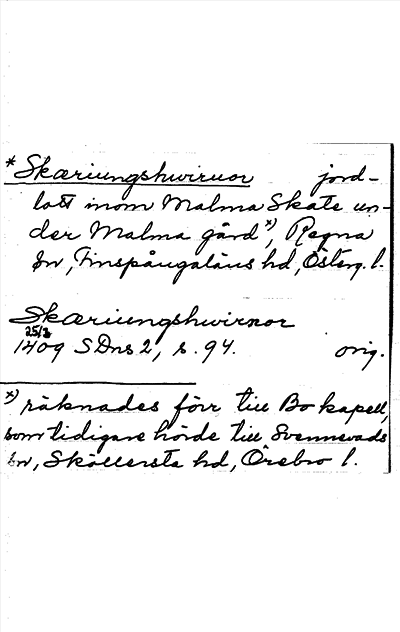 *Skæriungshwirnor jord-
lott inom Malma Skate un-
der Malma gård x), Regna
sn, Finspångaläns hd, Österg. l.
Skæriungshwirnor
25/3
1409 SDns 2, s. 94. orig.
x) räknades förr till Bo kapell,
som tidigare hörde till Svennevads
sn, Sköllersta hd, Örebro l.